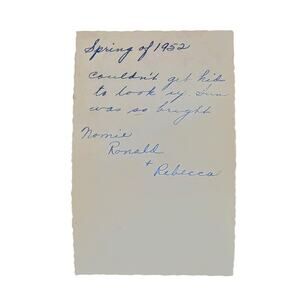 Spring of 1952
couldn't get kids
to look up. Sun
was so bright
Nomie
Ronald
+ Rebecca